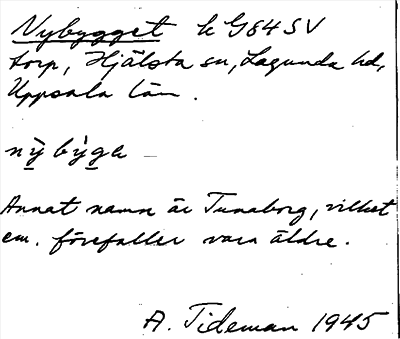 Nybygget k G84SV
torp, Hjälsta sn, Lagunda hd,
Uppsala län.
nỳ̲bỳg̲e
Annat namn är Tunaborg, vilket
em. förefaller vara äldre.
A. Tideman 1945